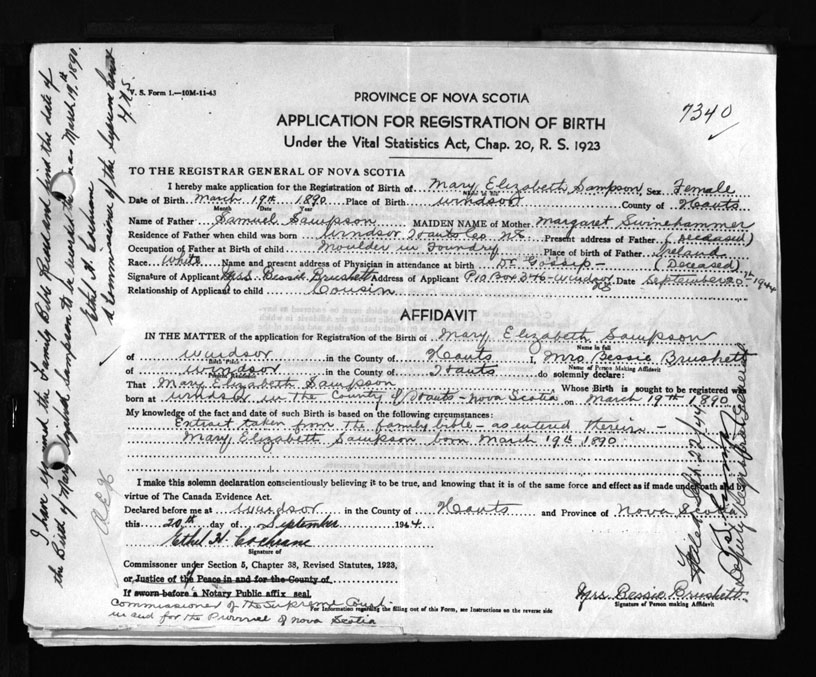 V. S. Form 1.—10M-11-43
PROVINCE OF NOVA SCOTIA
7340
APPLICATION FOR REGISTRATION OF BIRTH
Under the Vital Statistics Act, Chap. 20, R. S. 1923
TO THE REGISTRAR GENERAL OF NOVA SCOTIA
I hereby make application for the Registration of Birth of Mary Elizabeth Sampson, Sex Female
Name in full
Date of Birth March 19th 1890 Place of Birth Windsor County of Hants
Month Date Year
Name of Father Samuel Sampson MAIDEN NAME of Mother Margaret Swinehammer
Residence of Father when child was born Windsor Hants Co. NS Present address of Father (Deceased)
Occupation of Father at Birth of child Moulder in Foundry Place of Birth of Father Ireland
Race White Name and present address of Physician in attendance at birth Dr Gossip - (Deceased)
Signature of Applicant Mrs. Bessie Brushett Address of Applicant P.O. Box 346-Windsor NS Date September 20th 1944
Relationship of Applicant to child Cousin
AFFIDAVIT
IN THE MATTER of the application for Registration of the Birth of Mary Elizabeth Sampson
Name in full
of Windsor in the County of Hants I, Mrs. Bessie Brushett
Birth Place Name of Person Making Affidavit
of Windsor in the County of Hants do solemnly declare:
That Mary Elizabeth Sampson Whose Birth is sought to be registered was
born at Windsor in the County of Hants - Nova Scotia on March 19th 1890
My knowledge of the fact and date of such Birth is based on the following circumstances:
Extract taken from the family bible - as entered therein -
Mary Elizabeth Sampson born March 19th 1890.
I make this solemn declaration conscientiously believing it to be true, and knowing that it is of the same force and effect as if made under oath and by
virtue of The Canada Evidence Act.
Declared before me at Windsor in the County of Hants and Province of Nova Scotia
this 20th day of September 1944
Ethel H. Cochrane
Signature of
Commissioner under Section 5, Chapter 38, Revised Statutes, 1923,
or Justice of the Peace in and for the County of
If sworn before a Notary Public affix seal
Commissioner of the Supreme Court
in and for the Province of Nova Scotia
For Information regarding the filling out of this Form, see Instructions on the reverse side
Mrs. Bessie Brushett
Signature of Person making Affidavit
I have examined the Family Bible Record and find the date of
the Birth of Mary Elizabeth Sampson to be recorded therein as March 19th 1890.
Ethel H. Cochrane
a Commissioner of the Supreme Court
of N.S.
Filed Sept. 22/44
Deputy Registrar General